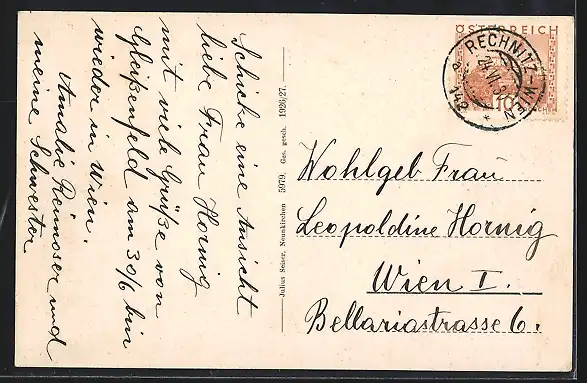 Schicke eine Ansicht
liebe Frau Hornig
mit viele Grüße von
Gleißenfeld am 30/6 bin
wieder in Wien.
Amalie Reinoser und
meine Schwester
Julius Seiser, Neunkirchen 5979. Ges. gesch. 1926/27.
ÖSTERREICH
10
RECHNITZ-WIEN
Wohlgeb Frau
Leopoldine Hornig
Wien I.
Bellariastrasse 6.